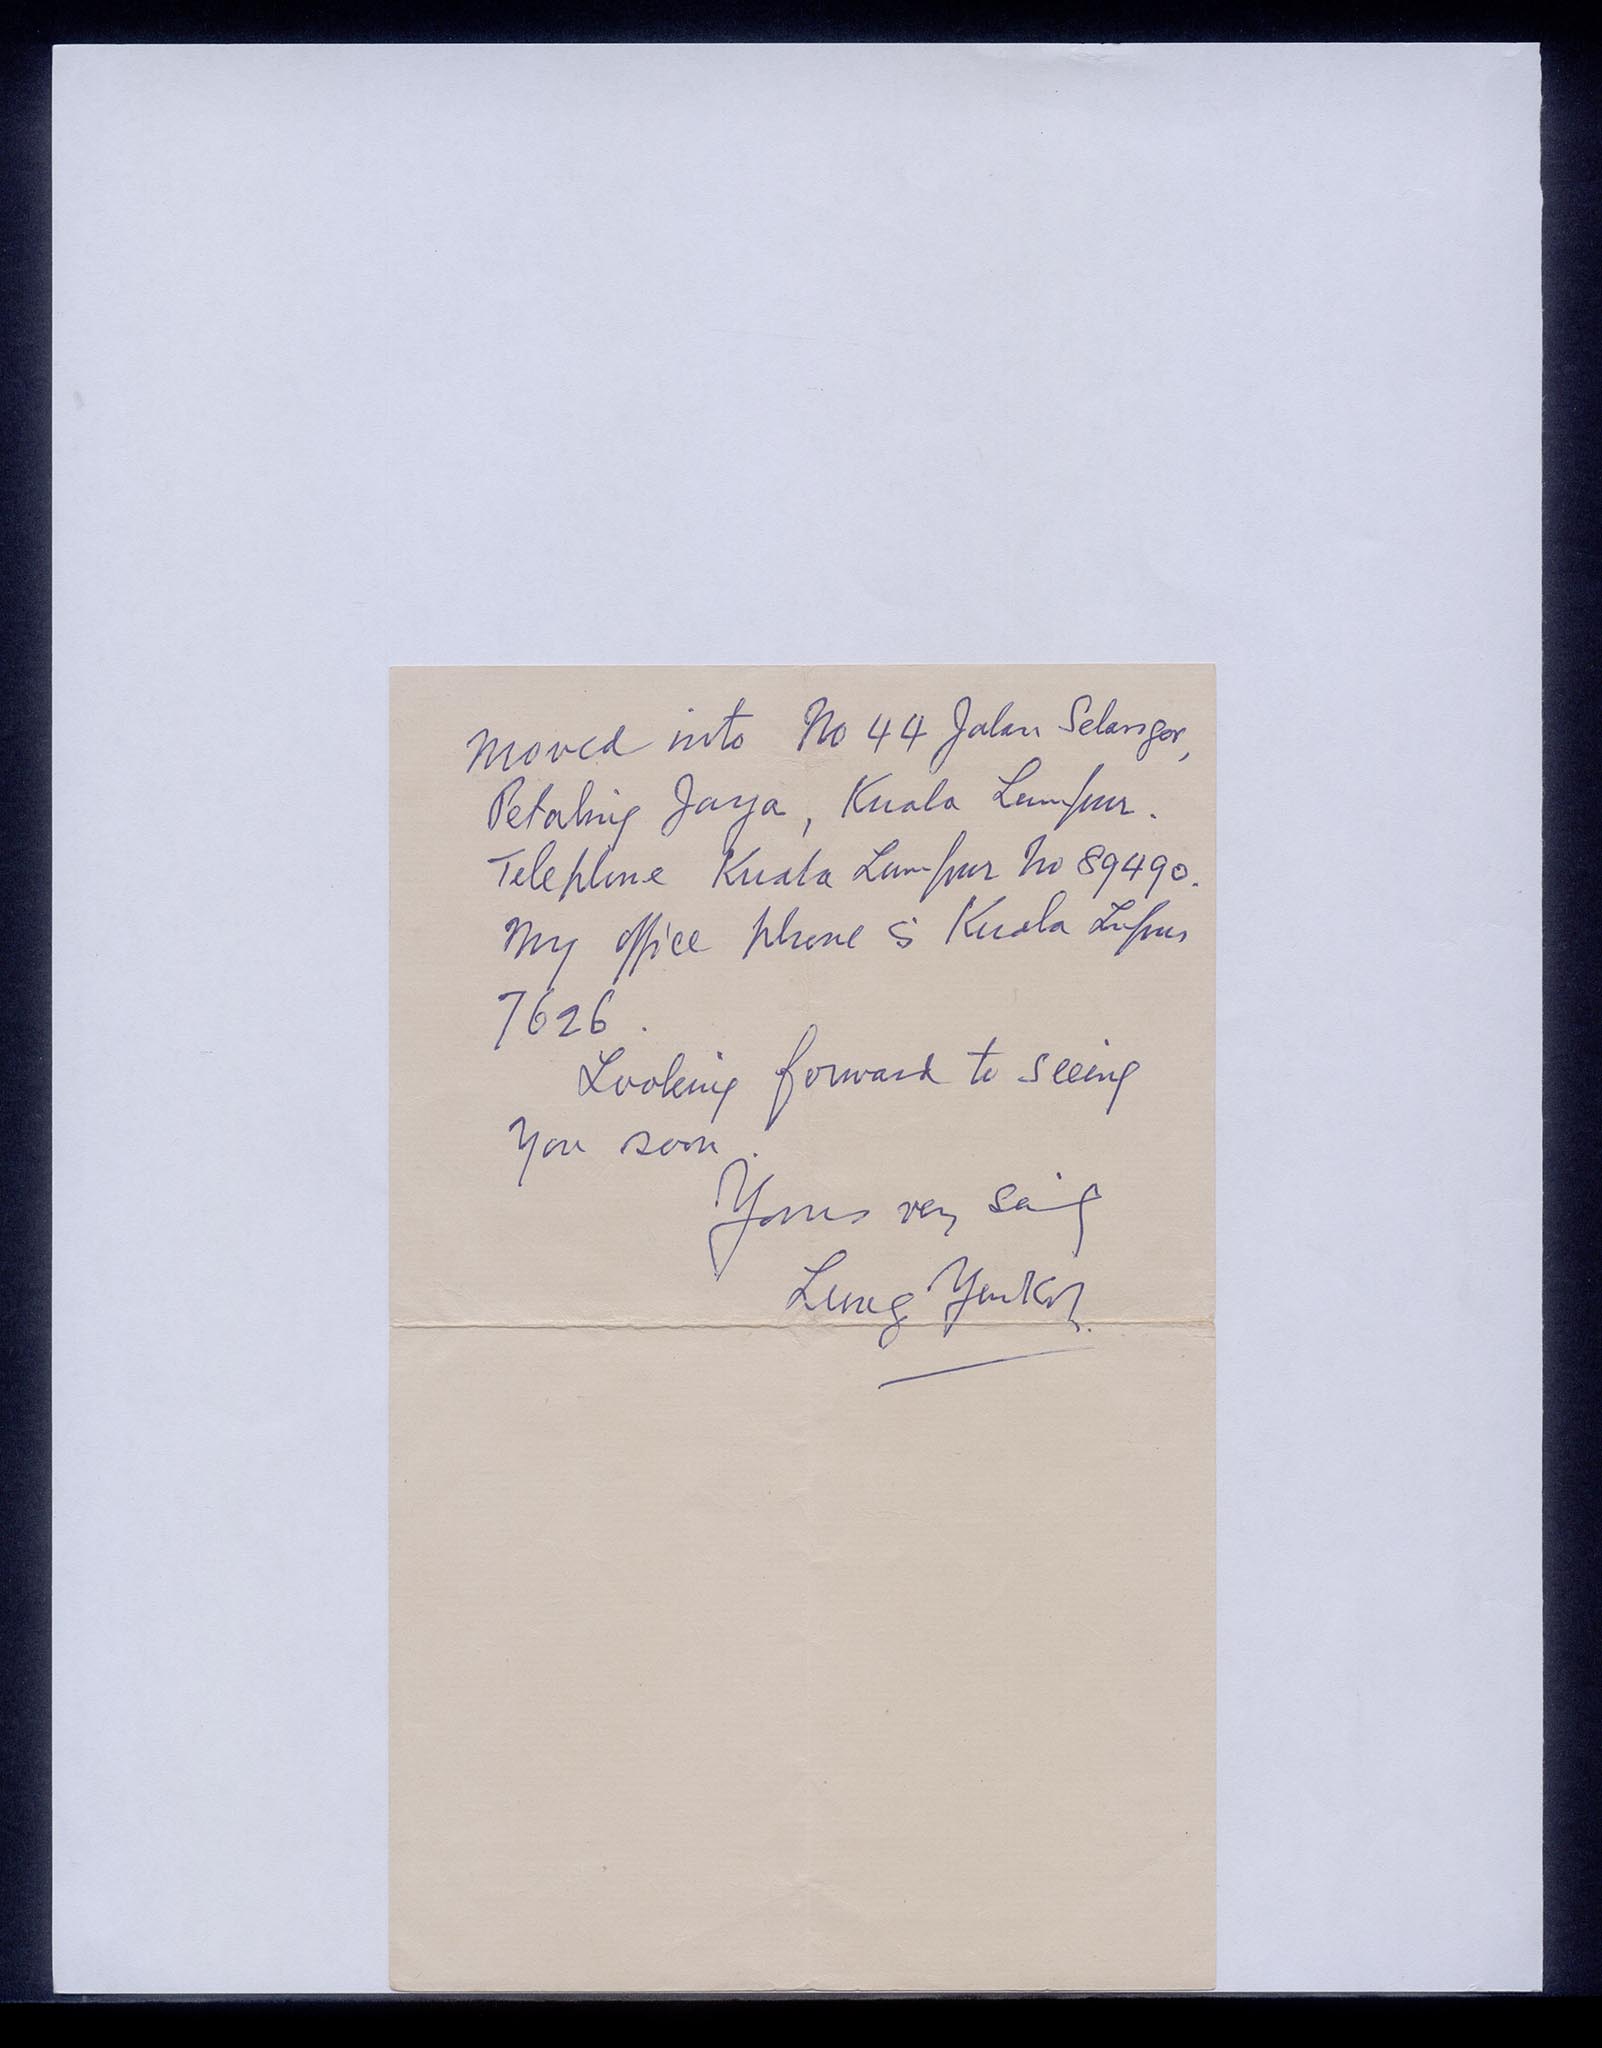 moved into No 44 Jalan Selangor,
Petaling Jaya, Kuala Lumpur.
Telephone Kuala Lumpur No 89490.
My office phone is Kuala Lumpur
7626.
Looking forward to seeing
you soon.
Yours very
Leung